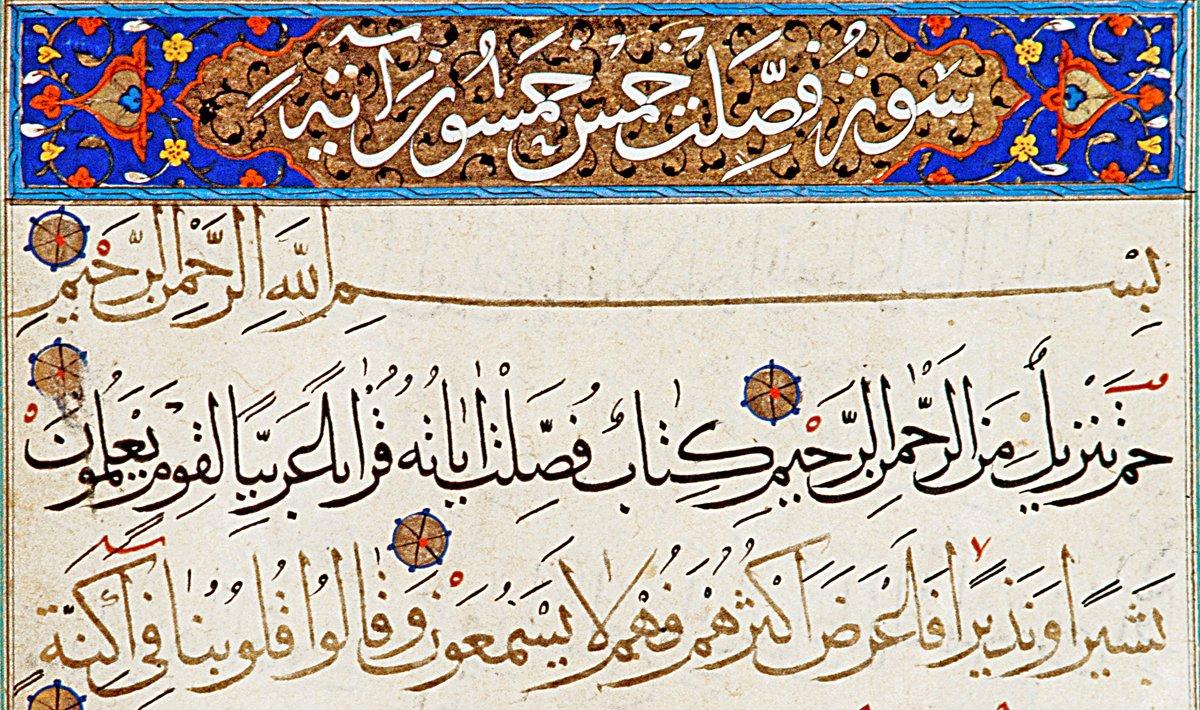 سورة فصّلت خمس خمسون آية
بِسْمِ اللهِ الرَّحْمنِ الرَّحيمِ
حم تَنزيلٌ مِنَ الرَّحْمنِ الرَّحيمِ كِتابٌ فُصِّلَتْ اياتُهُ قُرْاناً عَرَبِيّاً لِقَومٍ يَعْلَمُونَ
بَشيراً وَنَذيراً فَاَعْرَضَ اَكْثَرُهُمْ فَهُمْ لا يَسْمَعُونَ وَقالُوا قُلُوبُنا في اَكِنَّةٍ